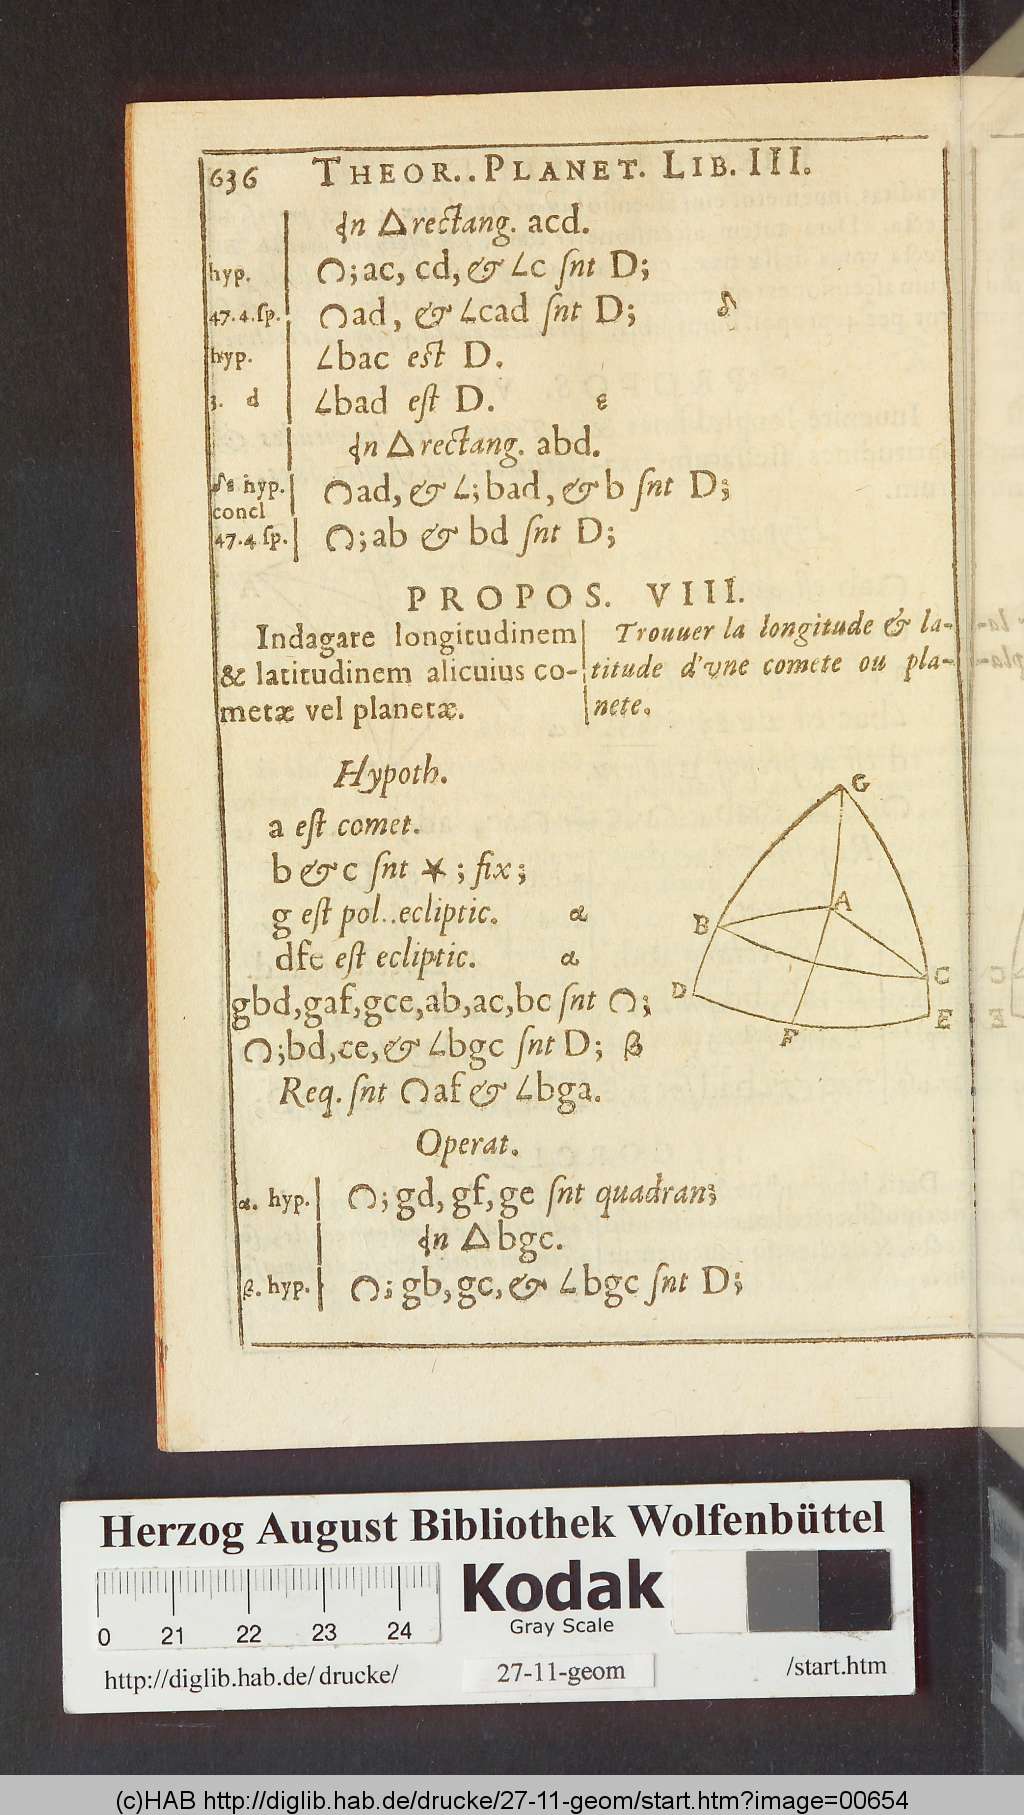 636 THEOR.. PLANET. LIB. III.
In △ rectang. acd.
hyp. ⌒; ac, cd, & ∠c ſnt D;
47.4.ſp. ⌒ad, & ∠cad ſnt D; δ
hyp. ∠bac est D.
3. d ∠bad eſt D. ε
In △ rectang. abd.
δε hyp. ⌒ad, & ∠; bad, & b ſnt D;
concl
47.4 ſp. ⌒; ab & bd ſnt D;
PROPOS. VIII.
Indagare longitudinem
& latitudinem alicuius co-
metæ vel planetæ.
Trouuer la longitude & la-
titude d'vne comete ou pla-
nete.
Hypoth.
a eſt comet.
b & c ſnt ★; fix;
g eſt pol..ecliptic. α
dfe eſt ecliptic. α
gbd, gaf, gce, ab, ac, bc ſnt ⌒;
⌒; bd, ce, & ∠bgc ſnt D; β
Req. ſnt ⌒af & ∠bga.
G
A
B
C
D
E
F
Operat.
α. hyp. ⌒; gd, gf, ge ſnt quadran;
In △ bgc.
β. hyp. ⌒; gb, gc, & ∠bgc ſnt D;
Herzog August Bibliothek Wolfenbüttel
Kodak
Gray Scale
0 21 22 23 24
http://diglib.hab.de/drucke/ 27-11-geom /start.htm
(c)HAB http://diglib.hab.de/drucke/27-11-geom/start.htm?image=00654